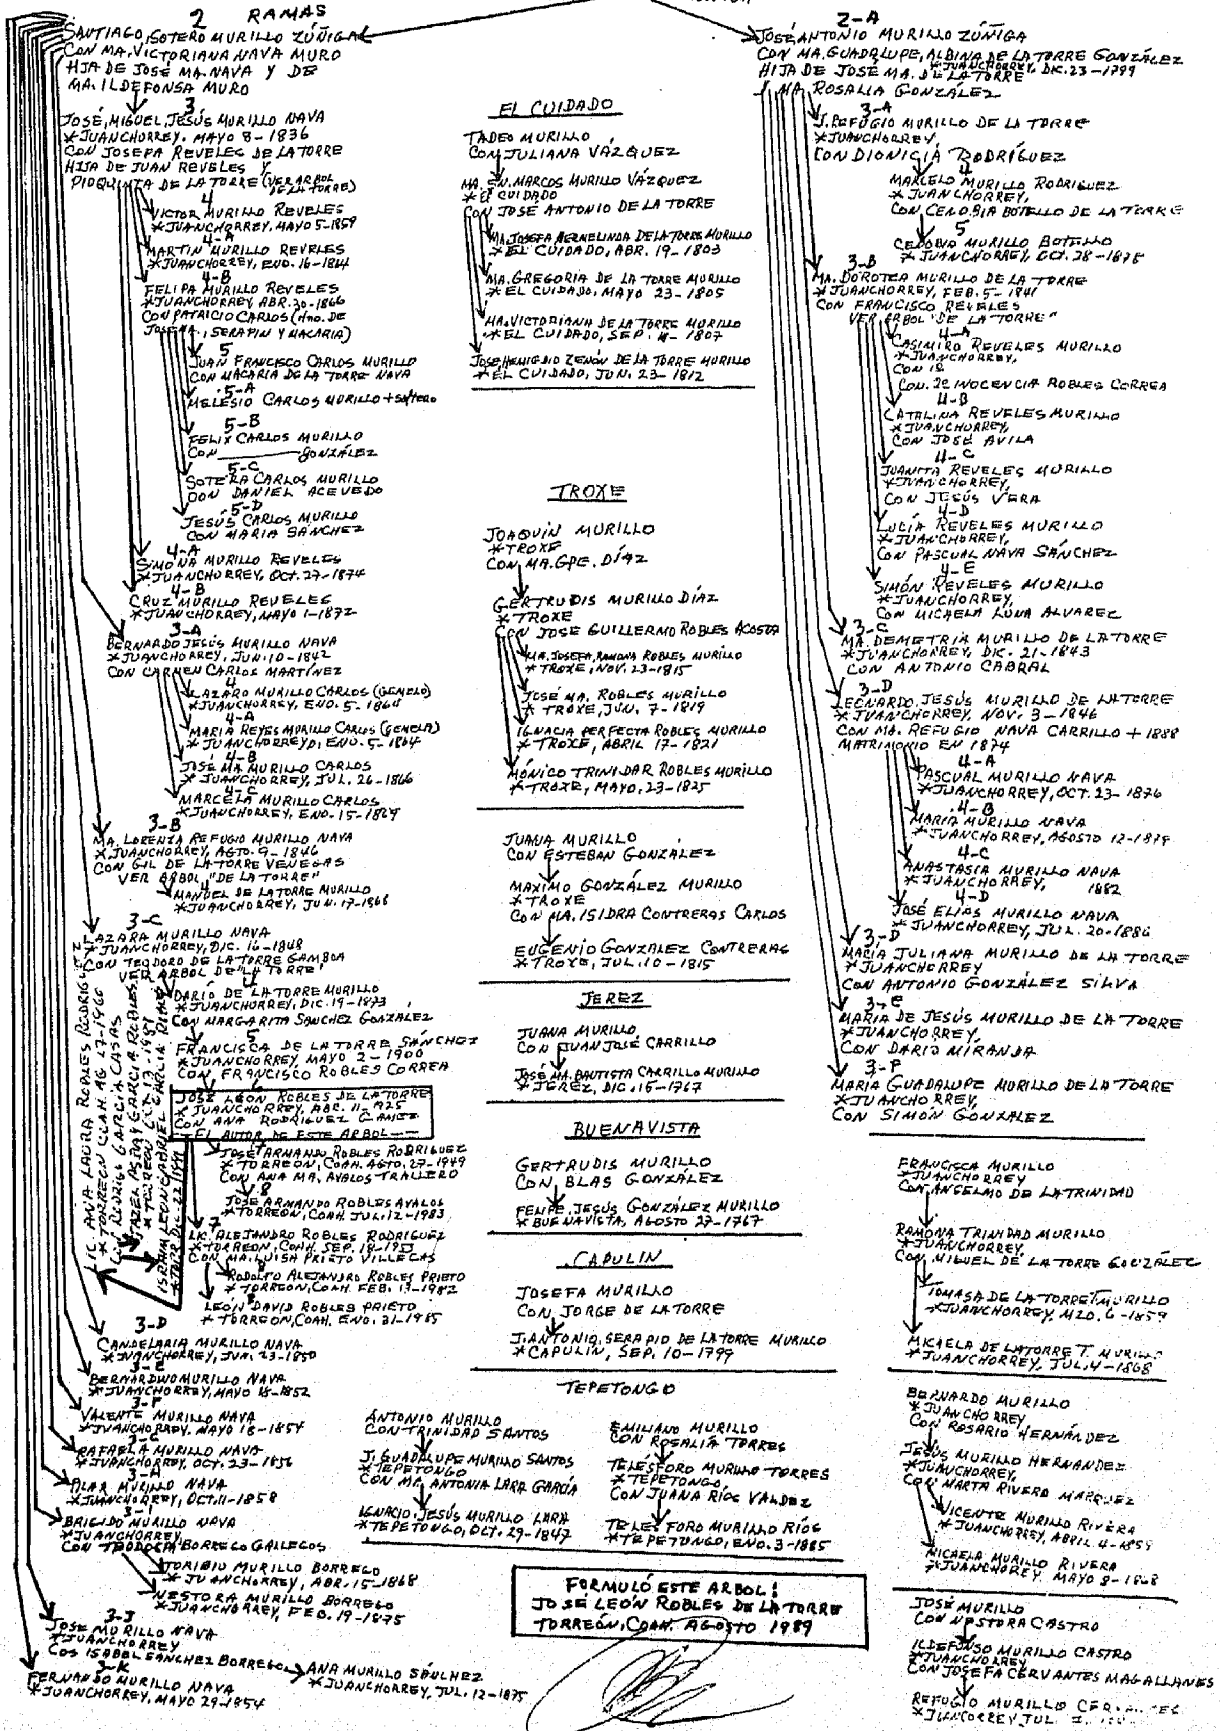 2 RAMAS
SANTIAGO, SOTERO MURILLO ZÚÑIGA
CON MA. VICTORIANA NAVA MURO
HIJA DE JOSÉ MA. NAVA Y DE
MA. ILDEFONSA MURO
3
JOSÉ, MIGUEL, JESÚS MURILLO NAVA
*JUANCHORREY. MAYO 8-1836
CON JOSEFA REVELES DE LA TORRE
HIJA DE JUAN REVELES Y
PIOQUINTA DE LA TORRE (VER ARBOL
DE LA TORRE)
4
VICTOR MURILLO REVELES
*JUANCHORREY, MAYO 5-1859
4-A
MARTIN MURILLO REVELES
*JUANCHORREY, ENO. 16-1864
4-B
FELIPA MURILLO REVELES
*JUANCHORREY ABR. 30-1866
CON PATRICIO CARLOS (Hno. DE
JOSE MA., SERAPIN Y MACARIA)
5
JUAN FRANCISCO CARLOS MURILLO
CON MACARIA DE LA TORRE NAVA
5-A
MELESIO CARLOS MURILLO + soltero
5-B
FELIX CARLOS MURILLO
CON ________ GONZÁLEZ
5-C
SOTERA CARLOS MURILLO
CON DANIEL ACEVEDO
5-D
JESÚS CARLOS MURILLO
CON MARIA SÁNCHEZ
4-A
SIMONA MURILLO REVELES
*JUANCHORREY, OCT. 27-1874
4-B
CRUZ MURILLO REVELES
*JUANCHORREY, MAYO 1-1872
3-A
BERNARDO JESÚS MURILLO NAVA
*JUANCHORREY, JUN. 10-1842
CON CARMEN CARLOS MARTÍNEZ
4
LAZARO MURILLO CARLOS (GEMELO)
*JUANCHORREY, ENO. 5-1864
4-A
MARIA REYES MURILLO CARLOS (GEMELA)
*JUANCHORREY, ENO. 5-1864
4-B
JOSE MA. MURILLO CARLOS
*JUANCHORREY, JUL. 26-1866
4-C
MARCELA MURILLO CARLOS
*JUANCHORREY, ENO. 15-1869
3-B
MA. LORENZA REFUGIO MURILLO NAVA
*JUANCHORREY, AGTO. 9-1846
CON GIL DE LA TORRE VENEGAS
VER ARBOL "DE LA TORRE"
4
MANUEL DE LA TORRE MURILLO
*JUANCHORREY, JUN. 17-1868
3-C
LAZARA MURILLO NAVA
*JUANCHORREY, DIC. 16-1848
CON TEODORO DE LA TORRE GAMBOA
VER ARBOL DE "LA TORRE"
4
DARÍO DE LA TORRE MURILLO
*JUANCHORREY, DIC. 19-1873
CON MARGARITA SANCHEZ GONZALEZ
5
FRANCISCA DE LA TORRE SÁNCHEZ
*JUANCHORREY, MAYO 2-1900
CON FRANCISCO ROBLES CORREA
6
JOSÉ LEÓN ROBLES DE LA TORRE
*JUANCHORREY, ABR. 11-925
CON ANA RODRÍGUEZ GAMEZ
EL AUTOR DE ESTE ARBOL--
7
JOSÉ ARMANDO ROBLES RODRIGUEZ
*TORREÓN, COAH. AGTO. 27-1949
CON ANA MA. AVALOS TRALLERO
8
JOSÉ ARMANDO ROBLES AVALOS
*TORREÓN, COAH. JUL. 12-1983
7
LIC. ALEJANDRO ROBLES RODRIGUEZ
*TORREÓN, COAH. SEP. 18-
CON MA. LUISA PRIETO VILLEGAS
8
RODOLFO ALEJANDRO ROBLES PRIETO
*TORREÓN, COAH. FEB. -1982
LEÓN DAVID ROBLES PRIETO
*TORREÓN, COAH. ENO. 31-1985
LIC. ANA LAURA ROBLES RODRIGUEZ
*TORREÓN COAH. AG 27-1966
CON RODRIGO GARCÍA CASAS
GARCIA ROBLES
*TORREÓN OCT. 13-1987
LEON GABRIEL GARCIA
*TORR DIC. 22
3-D
CANDELARIA MURILLO NAVA
*JUANCHORREY, JUN. 23-1850
3-E
BERNARDINO MURILLO NAVA
*JUANCHORREY, MAYO 18-1852
3-F
VALENTE MURILLO NAVA
*JUANCHORREY, MAYO 18-1854
3-G
RAFAELA MURILLO NAVA
*JUANCHORREY, OCT. 23-1856
3-H
PILAR MURILLO NAVA
*JUANCHORREY, OCT. 11-1858
3-I
BRIGIDO MURILLO NAVA
*JUANCHORREY
CON TEODOCIA BORREGO GALLEGOS
TORIBIO MURILLO BORREGO
*JUANCHORREY, ABR. 15-1868
NESTORA MURILLO BORREGO
*JUANCHORREY, FEB. 19-1875
3-J
JOSE MURILLO NAVA
*JUANCHORREY
CON ISABEL SÁNCHEZ BORREGO → ANA MURILLO SÁNCHEZ
*JUANCHORREY, JUL. 12-1875
3-K
FERNANDO MURILLO NAVA
*JUANCHORREY, MAYO 29-1854
EL CUIDADO
TADEO MURILLO
CON JULIANA VÁZQUEZ
MA. EN. MARCOS MURILLO VÁZQUEZ
*EL CUIDADO
CON JOSÉ ANTONIO DE LA TORRE
MA. JOSEFA HERMELINDA DE LA TORRE MURILLO
*EL CUIDADO, ABR. 19-1803
MA. GREGORIA DE LA TORRE MURILLO
*EL CUIDADO, MAYO 23-1805
MA. VICTORIANA DE LA TORRE MURILLO
*EL CUIDADO, SEP. -1807
JOSE, HEMIGDIO ZENÓN DE LA TORRE MURILLO
*EL CUIDADO, JUN. 23-1812
TROXE
JOAQUÍN MURILLO
*TROXE
CON MA. GPE. DÍAZ
GERTRUDIS MURILLO DÍAZ
*TROXE
CON JOSÉ GUILLERMO ROBLES ACOSTA
MA. JOSEFA, RAMONA ROBLES MURILLO
*TROXE, NOV. 23-1815
JOSÉ MA. ROBLES MURILLO
*TROXE, JUN. 7-1819
IGNACIA PERFECTA ROBLES MURILLO
*TROXE, ABRIL 17-1821
MÓNICO TRINIDAR ROBLES MURILLO
*TROXE, MAYO, 23-1825
JUANA MURILLO
CON ESTEBAN GONZÁLEZ
MAXIMO GONZÁLEZ MURILLO
*TROXE
CON MA. ISIDRA CONTRERAS CARLOS
EUGENIO GONZALEZ CONTRERAS
*TROXE, JUL. 10-1815
JEREZ
JUANA MURILLO
CON JUAN JOSÉ CARRILLO
JOSÉ MA. BAUTISTA CARRILLO MURILLO
*JEREZ, DIC. 15-1767
BUENAVISTA
GERTRUDIS MURILLO
CON BLAS GONZÁLEZ
FELIPE, JESÚS GONZÁLEZ MURILLO
*BUENAVISTA, AGOSTO 27-1767
CAPULIN
JOSEFA MURILLO
CON JORGE DE LA TORRE
J. ANTONIO, SERAPIO DE LA TORRE MURILLO
*CAPULIN, SEP. 10-1799
TEPETONGO
ANTONIO MURILLO
CON TRINIDAD SANTOS
J. GUADALUPE MURILLO SANTOS
*TEPETONGO
CON MA. ANTONIA LARA GARCÍA
IGNACIO, JESÚS MURILLO LARA
*TEPETONGO, OCT. 29-1847
EMILIANO MURILLO
CON ROSALÍA TORRES
TELESFORO MURILLO TORRES
*TEPETONGO,
CON JUANA RÍOS VALDEZ
TELESFORO MURILLO RÍOS
*TEPETONGO, ENO. 3-1885
FORMULÓ ESTE ARBOL:
JOSÉ LEÓN ROBLES DE LA TORRE
TORREÓN, COAH. AGOSTO 1989
2-A
JOSÉ ANTONIO MURILLO ZÚÑIGA
CON MA. GUADALUPE, ALBINA DE LA TORRE GONZÁLEZ
*JUANCHORREY, DIC. 23-1799
HIJA DE JOSÉ MA. DE LA TORRE
Y MA. ROSALIA GONZÁLEZ
3-A
J. REFUGIO MURILLO DE LA TORRE
*JUANCHORREY,
CON DIONICIA RODRÍGUEZ
4
MARCELO MURILLO RODRIGUEZ
*JUANCHORREY,
CON CENOBIA BOTELLO DE LA TORRE
5
CENOBIO MURILLO BOTELLO
*JUANCHORREY, OCT. 28-1878
3-B
MA. DOROTEA MURILLO DE LA TORRE
*JUANCHORREY, FEB. 5-1841
CON FRANCISCO REVELES
VER ARBOL "DE LA TORRE"
4-A
CASIMIRO REVELES MURILLO
*JUANCHORREY,
CON 1ª
CON. 2ª INOCENCIA ROBLES CORREA
4-B
CATALINA REVELES MURILLO
*JUANCHORREY,
CON JOSÉ AVILA
4-C
JUANITA REVELES MURILLO
*JUANCHORREY,
CON JESÚS VERA
4-D
LUCÍA REVELES MURILLO
*JUANCHORREY,
CON PASCUAL NAVA SÁNCHEZ
4-E
SIMÓN REVELES MURILLO
*JUANCHORREY,
CON MICAELA LUNA ALVAREZ
3-C
MA. DEMETRIA MURILLO DE LA TORRE
*JUANCHORREY, DIC. 21-1843
CON ANTONIO CABRAL
3-D
LEONARDO, JESÚS MURILLO DE LA TORRE
*JUANCHORREY, NOV. 3-1846
CON MA. REFUGIO NAVA CARRILLO + 1888
MATRIMONIO EN 1874
4-A
PASCUAL MURILLO NAVA
*JUANCHORREY, OCT. 23-1876
4-B
MARIA MURILLO NAVA
*JUANCHORREY, AGOSTO 12-1879
4-C
ANASTASIA MURILLO NAVA
*JUANCHORREY, 1882
4-D
JOSÉ ELIAS MURILLO NAVA
*JUANCHORREY, JUL. 20-1886
3-D
MARIA JULIANA MURILLO DE LA TORRE
*JUANCHORREY
CON ANTONIO GONZÁLEZ SILVA
3-E
MARIA DE JESÚS MURILLO DE LA TORRE
*JUANCHORREY,
CON DARIO MIRANDA
3-F
MARIA GUADALUPE MURILLO DE LA TORRE
*JUANCHORREY,
CON SIMÓN GONZALEZ
FRANCISCA MURILLO
*JUANCHORREY
CON ANSELMO DE LA TRINIDAD
RAMONA TRINIDAD MURILLO
*JUANCHORREY
CON MIGUEL DE LA TORRE GONZÁLEZ
TOMASA DE LA TORRE T. MURILLO
*JUANCHORREY, MZO. 6-1859
MICAELA DE LA TORRE T. MURILLO
*JUANCHORREY, JUL. 4-1868
BERNARDO MURILLO
*JUANCHORREY
CON ROSARIO HERNÁNDEZ
JESÚS MURILLO HERNANDEZ
*JUANCHORREY,
CON MARTA RIVERA MARQUEZ
VICENTE MURILLO RIVERA
*JUANCHORREY, ABRIL 4-1859
MICAELA MURILLO RIVERA
*JUANCHORREY, MAYO 8-1868
JOSÉ MURILLO
CON NESTORA CASTRO
ILDEFONSO MURILLO CASTRO
*JUANCHORREY
CON JOSEFA CERVANTES MAGALLANES
REFUGIO MURILLO CERVANTES
*JUANCORREY JUL